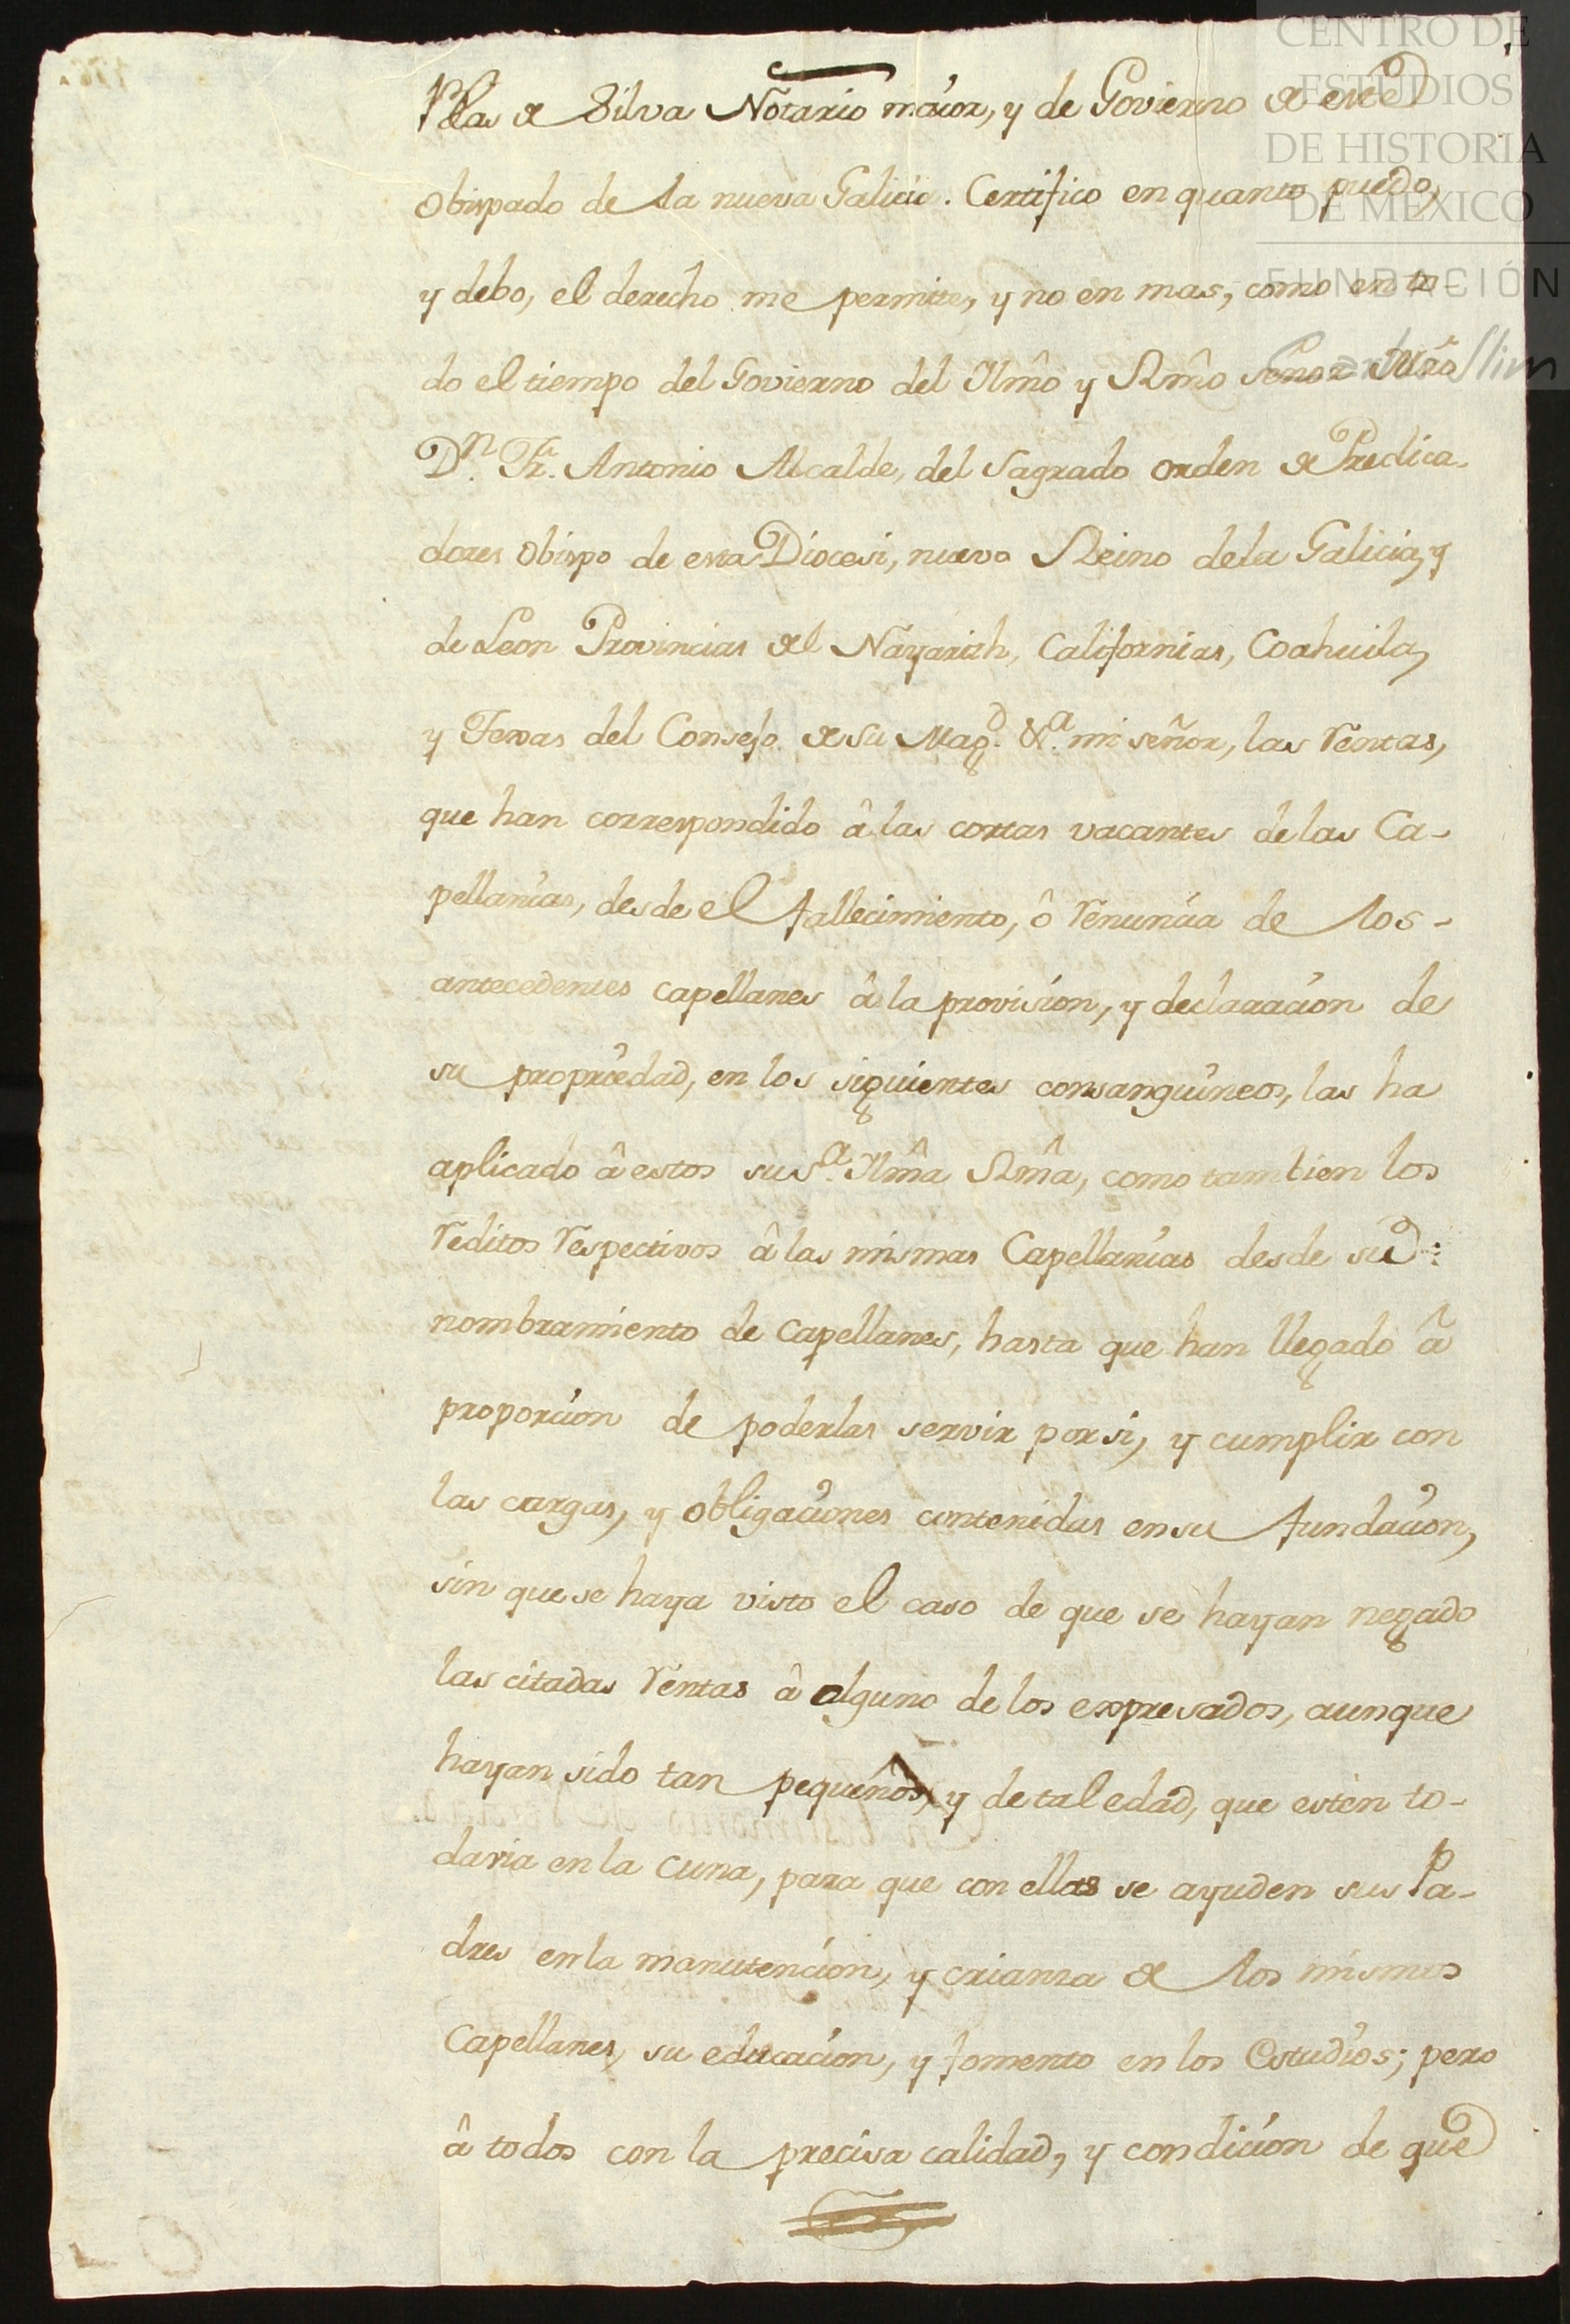 CENTRO DE
ESTUDIOS
DE HISTORIA
DE MÉXICO
FUNDACIÓN
Carlos Slim
Blas de Silva Notario maior, y de Govierno de este
Obispado de la nueva Galicia. Certifico en quanto puedo,
y debo, el derecho me permite, y no en mas, como en to-
do el tiempo del Govierno del Ylmô y Rmô Señor Mrô
Dn. Fr. Antonio Alcalde, del Sagrado orden de Predica-
dores Obispo de esta Diocesi, nuevo Reino dela Galicia, y
de Leon Provincias del Nayarith, Californias, Coahuila,
y Texas del Consejo de su Magd. &a. mi señor, las rentas,
que han correspondido â las cortas vacantes de las Ca-
pellanías, desde el fallecimiento, ô renuncia de los-
antecedentes capellanes â la provision, y declaracion de
su propriedad, en los siguientes consanguineos, las ha
aplicado â estos su Sa. Ylmâ Rmâ, como tambien los
reditos respectivos â las mismas Capellanías desde su
nombramiento de capellanes, hasta que han llegado â
proporcion de poderlas servir porsi, y cumplir con
las cargas, y obligaciones contenidas ensu fundacion,
sin que se haya visto el caso de que se hayan negado
las citadas rentas â alguno de los expresados, aunque
hayan sido tan pequeños, y de tal edad, que estén to-
davia en la cuna, para que con ellas se ayuden sus Pa-
dres en la manutencion, y crianza de los mismos
Capellanes, su educacion, y fomento en los Estudios; pero
â todos con la precisa calidad, y condicion de que